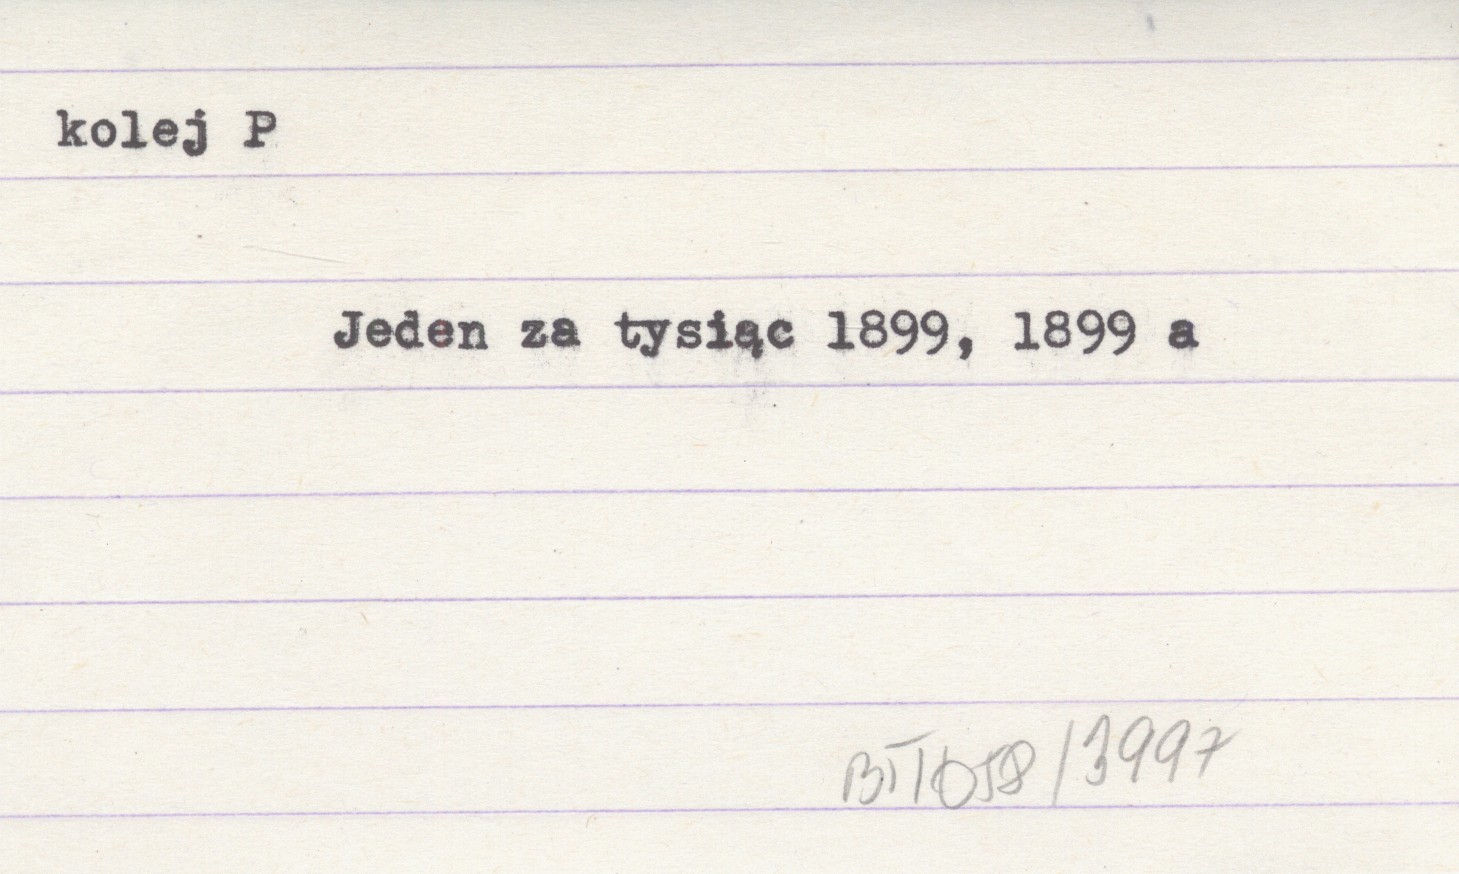 kolej P
Jeden za tysiąc 1899, 1899 a
BT1058/3997